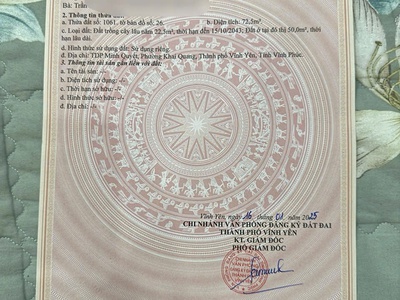 Bà: Trần
2. Thông tin thửa đất:
a. Thửa đất số: 1061, tờ bản đồ số: 26. b. Diện tích: 72,3m².
c. Loại đất: Đất trồng cây lâu năm 22,3m², thời hạn đến 15/10/2043; Đất ở tại đô thị 50,0m², thời
hạn lâu dài.
d. Hình thức sử dụng đất: Sử dụng riêng.
đ. Địa chỉ: TDP Minh Quyết, Phường Khai Quang, Thành phố Vĩnh Yên, Tỉnh Vĩnh Phúc.
3. Thông tin tài sản gắn liền với đất:
a. Tên tài sản: -/-
b. Diện tích sử dụng: -/-
c. Thời hạn sở hữu: -/-
d. Hình thức sở hữu: -/-
đ. Địa chỉ: -/-
Vĩnh Yên, ngày 16 tháng 01 năm 2025
CHI NHÁNH VĂN PHÒNG ĐĂNG KÝ ĐẤT ĐAI
THÀNH PHỐ VĨNH YÊN
KT. GIÁM ĐỐC
PHÓ GIÁM ĐỐC
CHI NHÁNH
VĂN PHÒNG
ĐĂNG KÝ ĐẤT ĐAI
THÀNH PHỐ
VĨNH YÊN